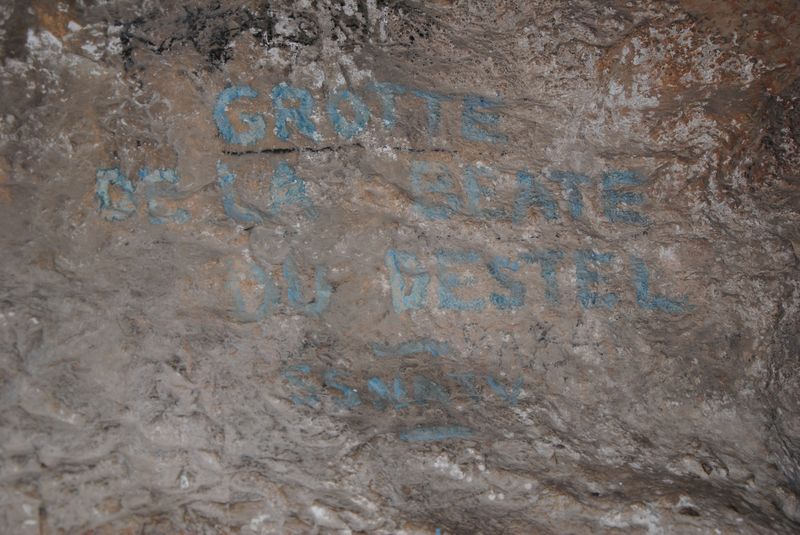 GROTTE
DE LA BEATE
DU BESTEL
SSNATV